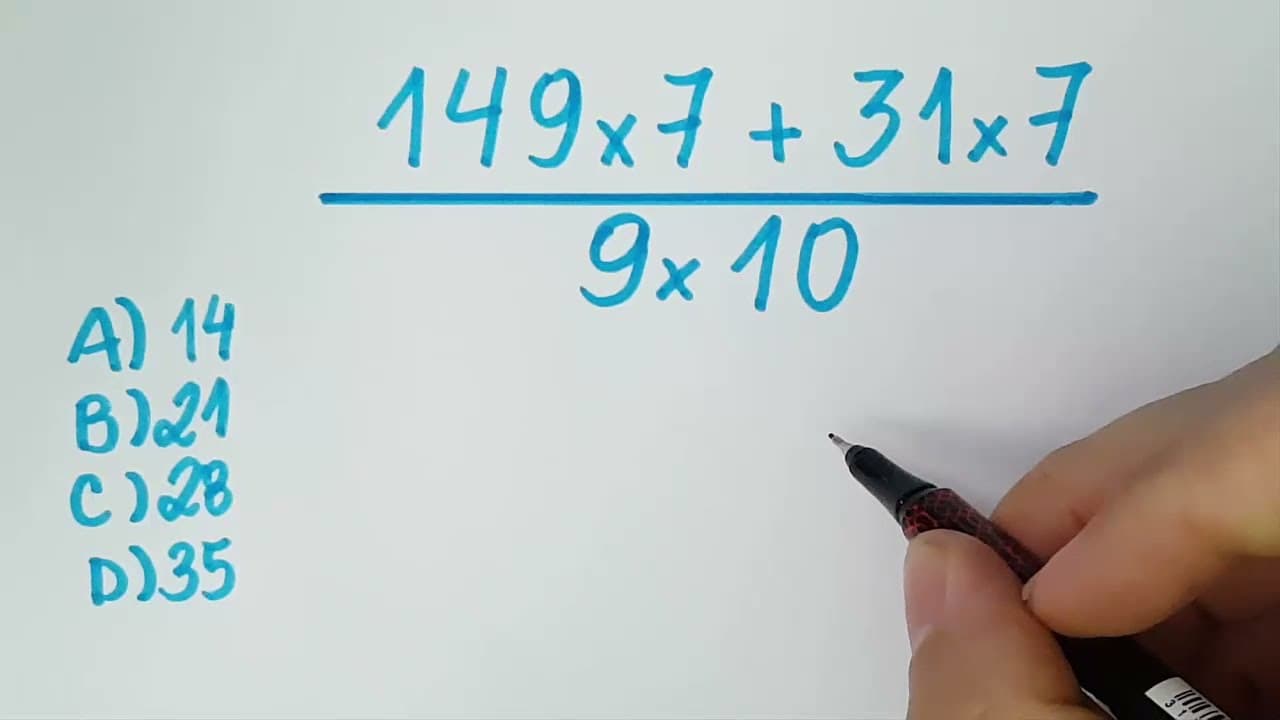 149x7 + 31x7
9x10
A) 14
B) 21
C) 28
D) 35